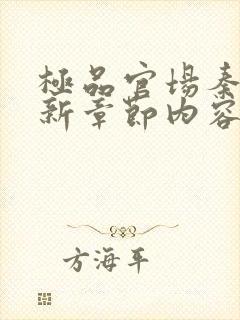 極品官場秦
新章節内容
方海平